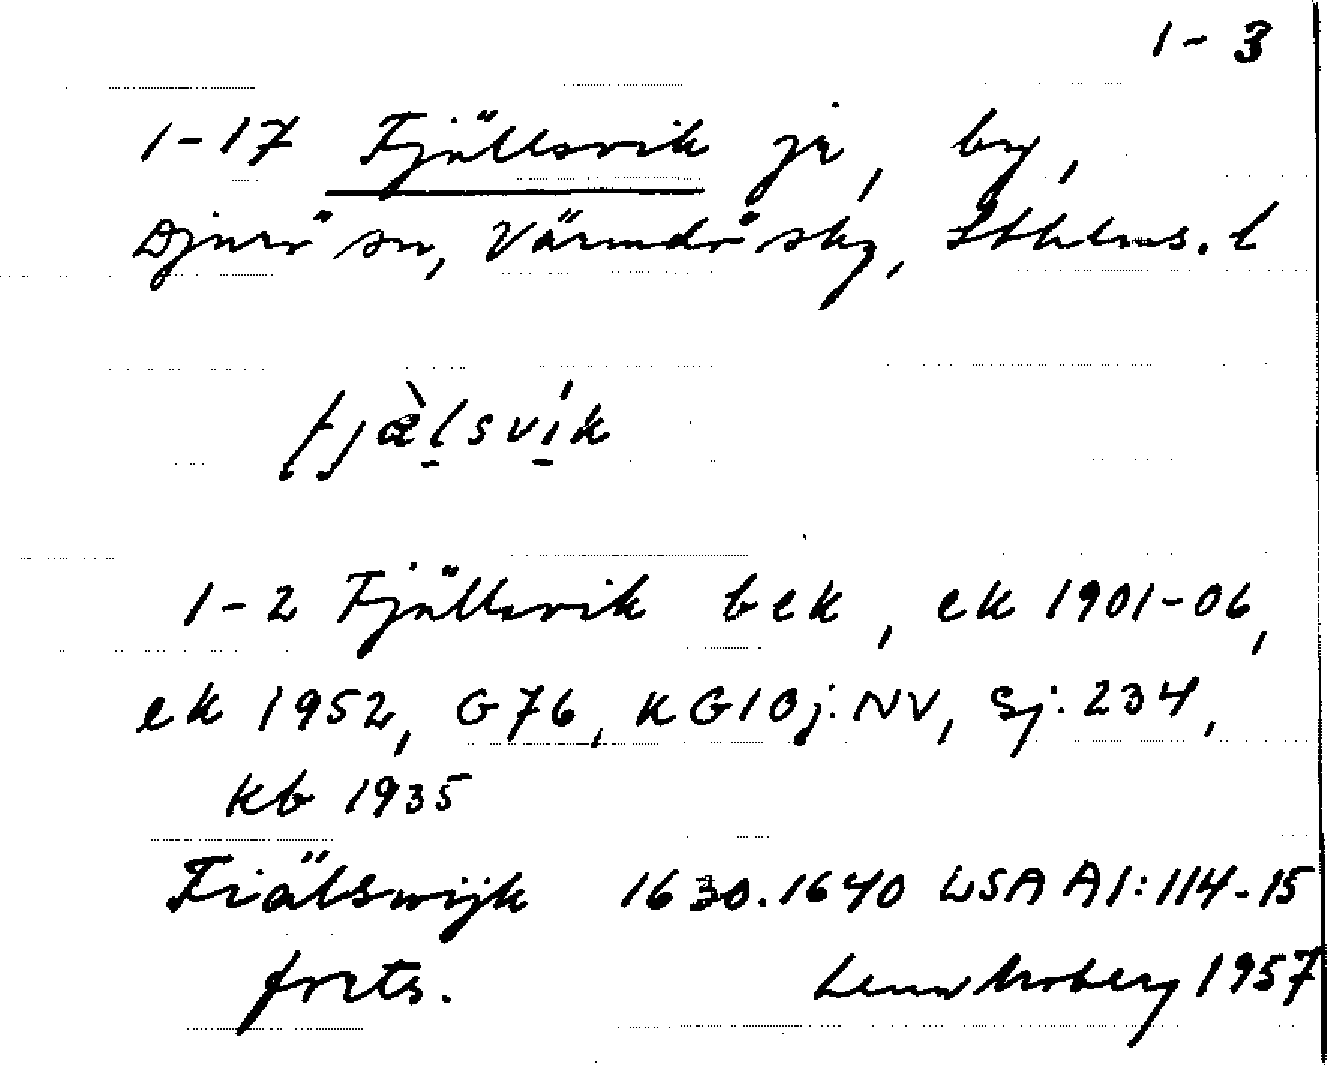 1-3
1-17 Fjällsvik by,
Djurö sn, Värmdö skg, Sthlms. l
fjæ̀l̠sví̠k
1-2 Fjällsvik bek, ek 1901-06,
ek 1952, G76, KG10j:NV, Sj:234,
kb 1935
Fiälswijk 1630. 1640 LSA A1:114-15
forts. Lennart Moberg 1957